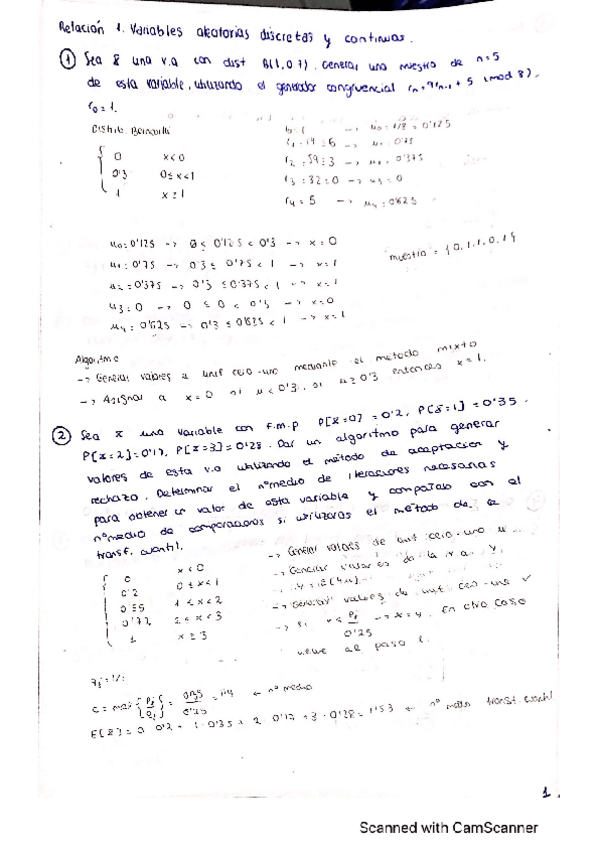 Relación 1. Variables aleatorias discretas y continuas.
① Sea X una v.a con dist B(1,0'7). Generar una muestra de n=5
de esta variable, utilizando el generador congruencial rn=9rn-1 + 5 (mod 8),
r0=1.
Distrib. Bernoulli
0 x<0
0'3 0≤x<1
1 x≥1
-> u0=1/8=0'125
r1=14≡6 -> u1=0'75
r2=59≡3 -> u2=0'375
r3=32≡0 -> u3=0
r4=5 -> u4=0'625
u0=0'125 -> 0≤0'125<0'3 -> x=0
u1=0'75 -> 0'3≤0'75<1 -> x=1
u2=0'375 -> 0'3≤0'375<1 -> x=1
u3=0 -> 0≤0<0'3 -> x=0
u4=0'625 -> 0'3≤0'625<1 -> x=1
muestra={0,1,1,0,1}
Algoritmo
-> Generar valores u unif cero-uno mediante el método mixto
-> Asignar a x=0 si u<0'3, si u≥0'3 entonces x=1.
② Sea X una variable con f.m.p P[X=0]=0'2, P[X=1]=0'35.
P[X=2]=0'17, P[X=3]=0'28. Dar un algoritmo para generar
valores de esta v.a utilizando el método de aceptación y
rechazo. Determinar el nºmedio de iteraciones necesarias
para obtener un valor de esta variable y compáralo con el
nºmedio de comparaciones si utilizaras el método de la
transf. cuantil.
0 x<0
0'2 0≤x<1
0'55 1≤x<2
0'72 2≤x<3
1 x≥3
-> Generar valores de unif cero-uno u
-> Generar valores de la v.a. y,
y=E[4u]
-> Generar valores de unif. cero-uno v
-> si v≤ Pj/0'25 -> x=y. En otro caso
vuelve al paso 1.
C=max{Pj/qj}=0'35/0'25=1'4 ← nº medio
E[X]=0·0'2+1·0'35+2·0'17+3·0'28=1'53 ← nº medio transf. cuantil
1
Scanned with CamScanner